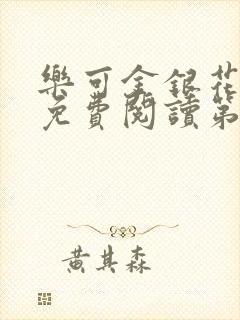 樂可金銀花
免費閱讀第
黃其森